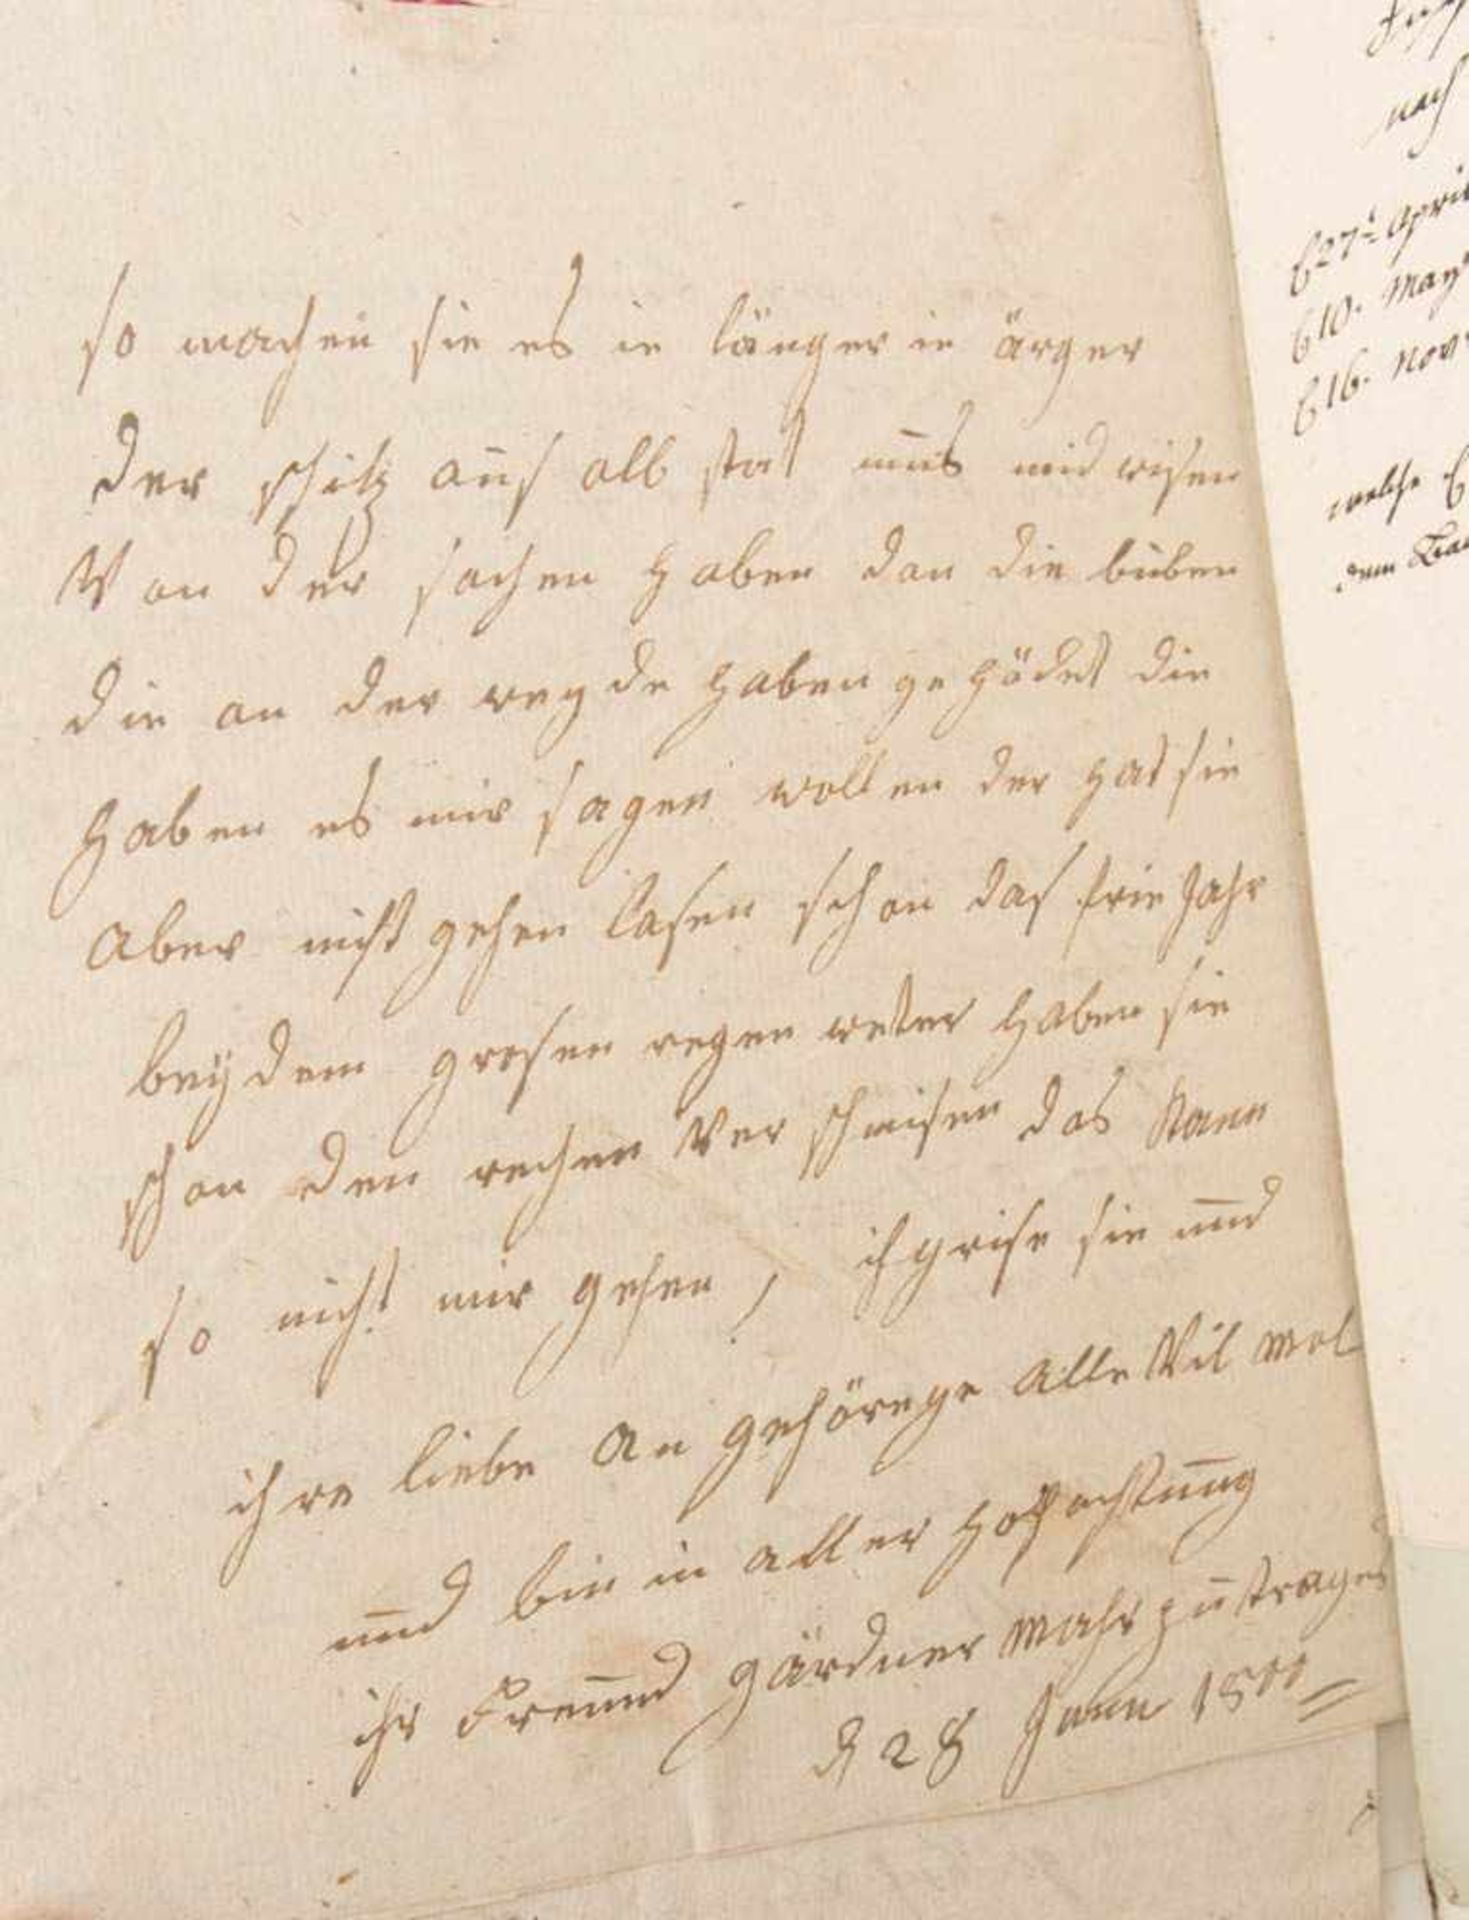 so machen sie es ie länger ie ärger
der schitz aus alb stat mus mid wisen
Von der sachen haben dan die buben
die an der weyde haben gehödet die
haben es mir sagen wollen der hat sie
aber nicht gehen lasen schon das frie Jahr
beÿ dem grosen regen weter haben sie
schon den rechen Ver schmisen das kann
so nicht mir gehen, ich grise sie und
ihre liebe an gehörege alle Vil mol
und bin in aller hochachtung
ihr Freund gärdner Mahr zu trages
d 28 Juni 18
nach
d 27t April
d 10. May
d 16. Nov
welche
dem